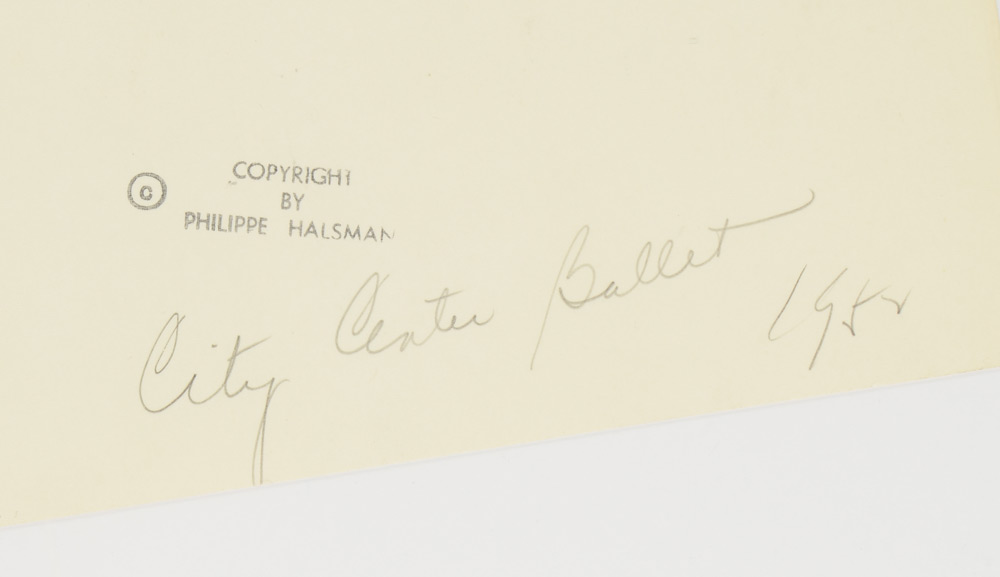 © COPYRIGHT
BY
PHILIPPE HALSMAN
City Center Ballet 1952